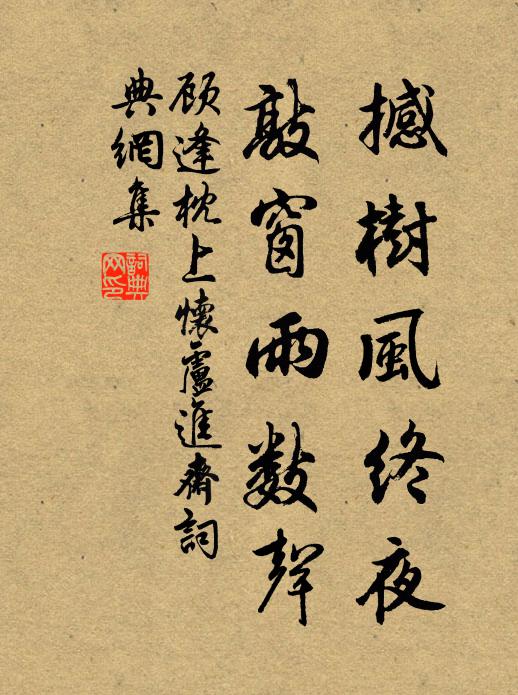 撼樹風終夜
敲窗雨数聲
顾逢枕上懷盧進齋詞
典網集
詞典
网印